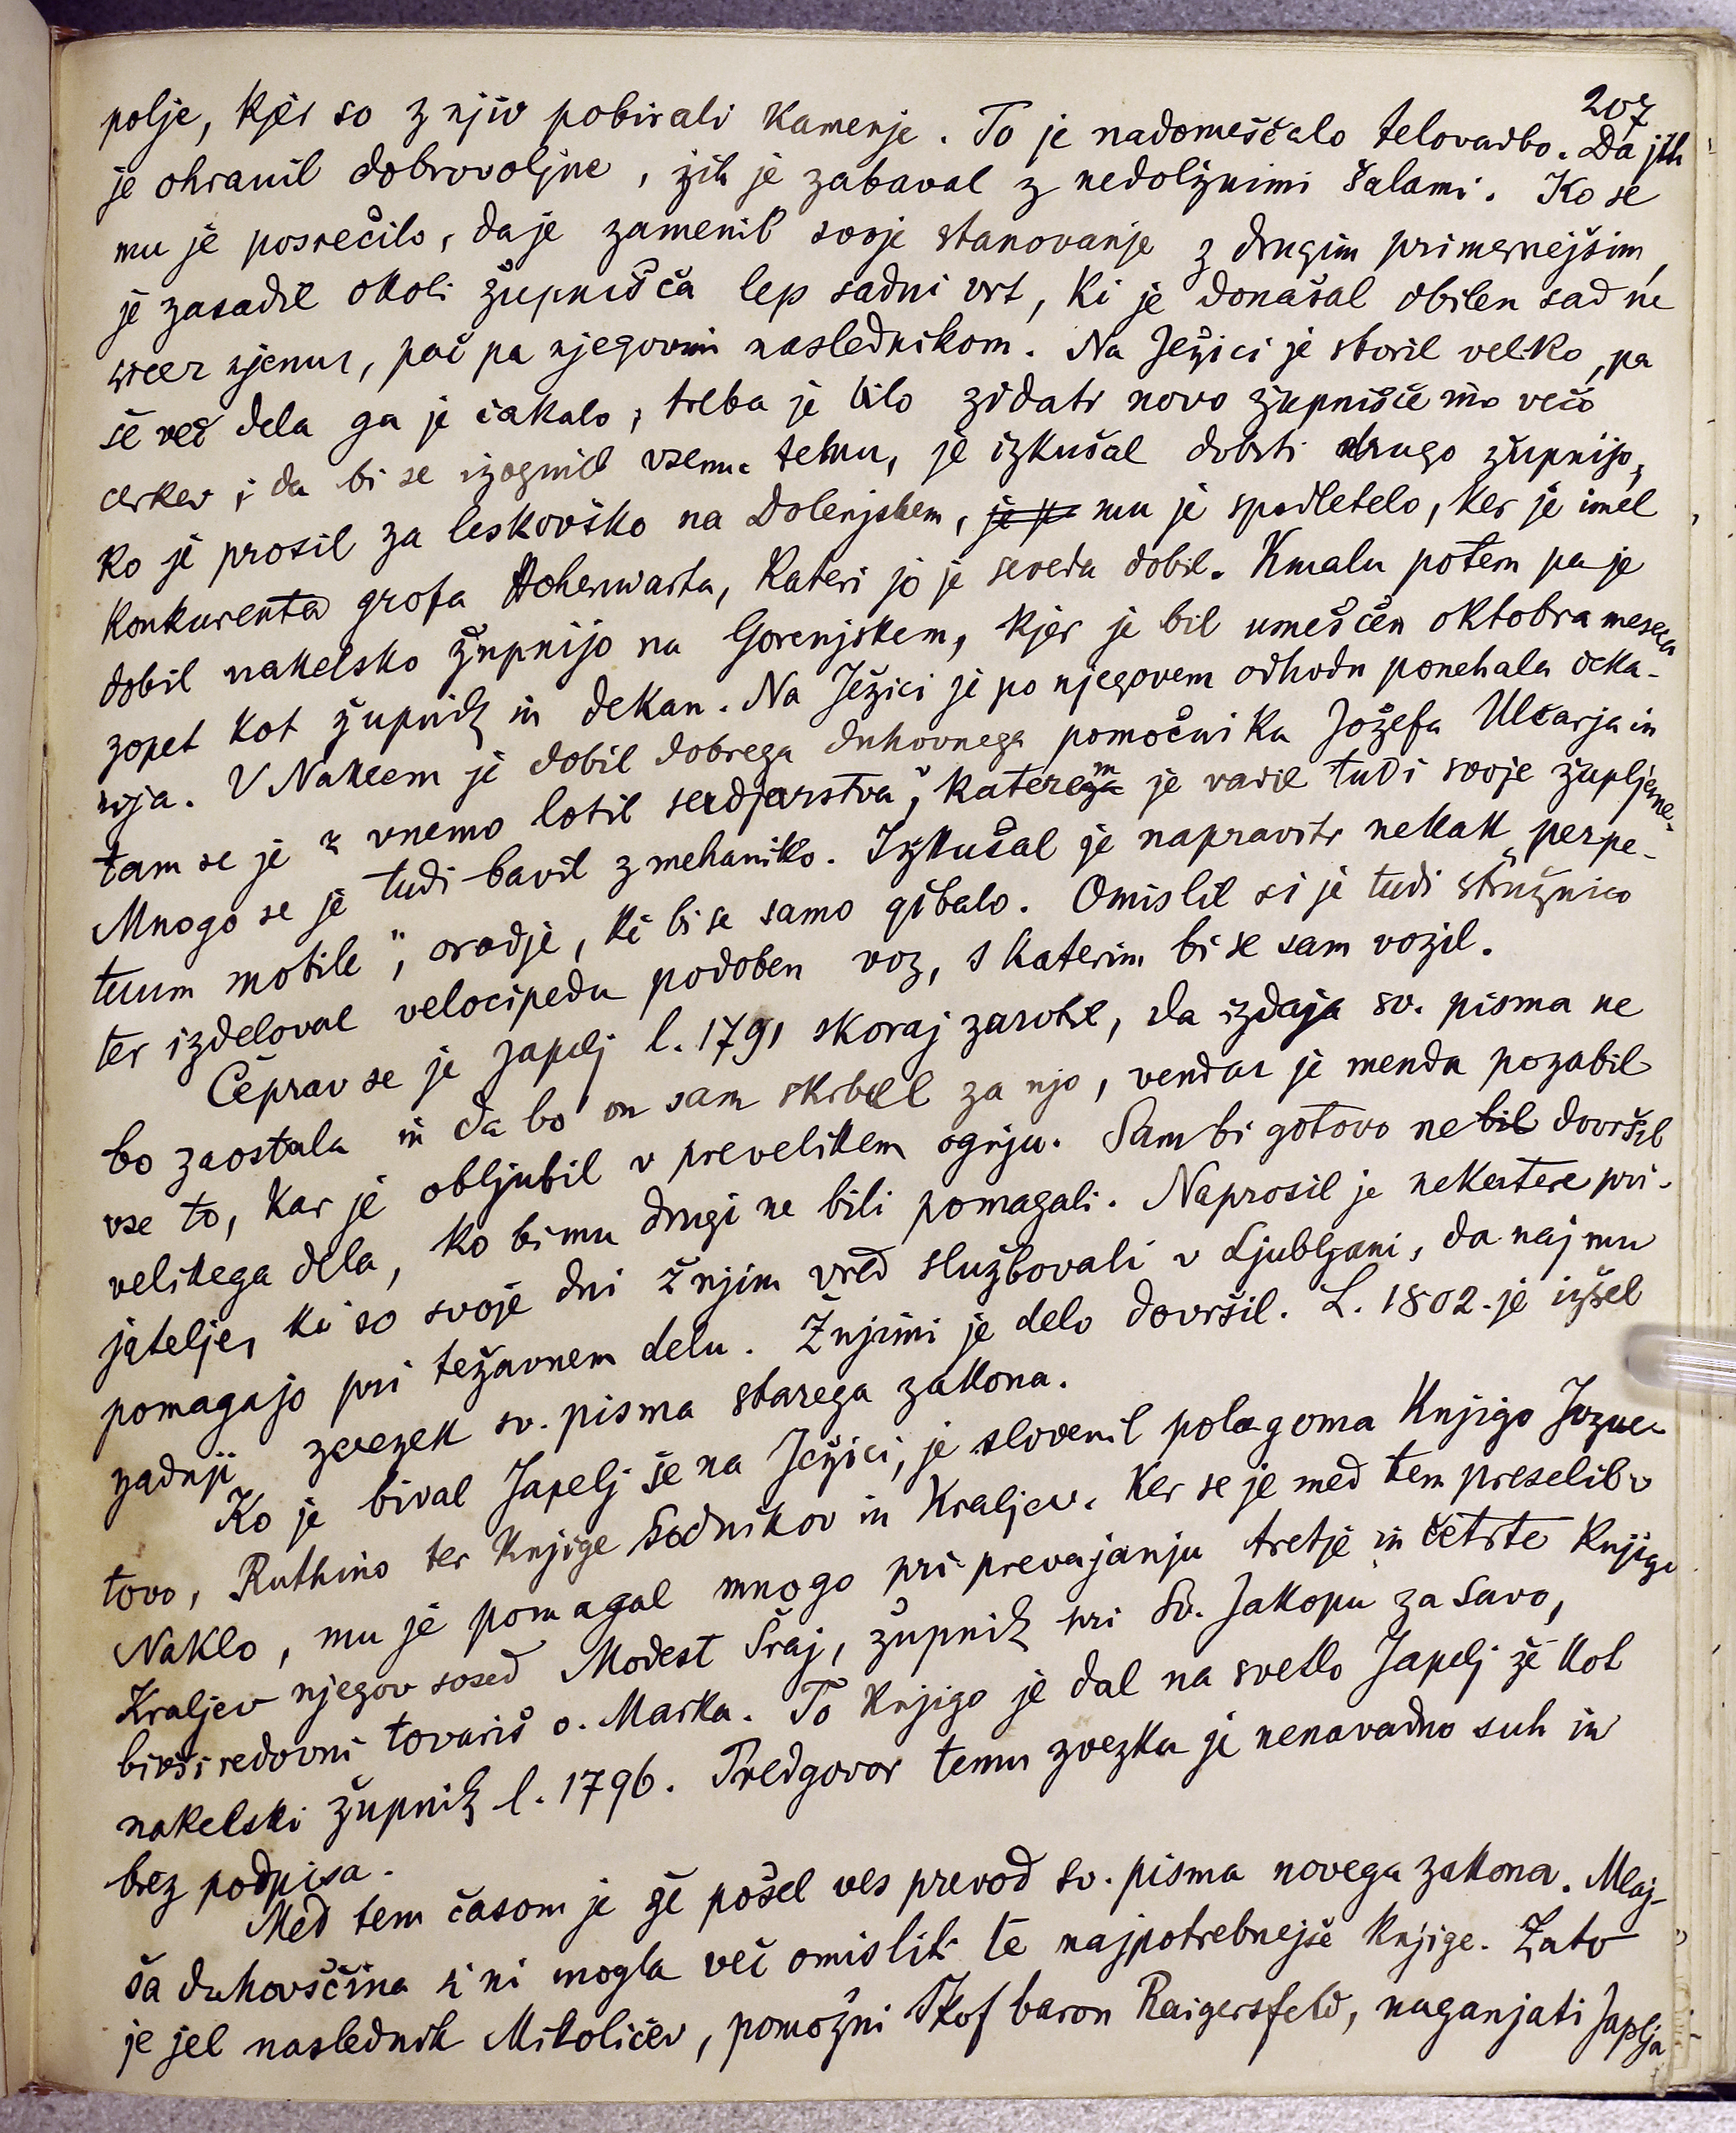 207
polje, kjer so z njiv pobirali kamenje. To je nadomeščalo telovadbo. Da jih
je ohranil dobrovoljne, jih je zabaval z nedolžnimi šalami. Ko se
mu je posrečilo, da je zamenil svoje stanovanje z drugim primernejšim,
je zasadil okoli župnišča lep sadni vrt, ki je donašal obilen sad ne
sicer njemu, pač pa njegovim naslednikom. Na Ježici je storil veliko, pa
še več dela ga je čakalo; treba je bilo zidati novo župnišče in večo
cerkev; da bi se izognil vsemu temu, je izkušal dobiti drugo župnijo,
ko je prosil za leskovško na Dolenjskem, mu je spodletelo, ker je imel
konkurenta grofa Hohenwarta, kateri jo je seveda dobil. Kmalu potem pa je
dobil nakelsko župnijo na Gorenjskem, kjer je bil umeščen oktobra meseca
zopet kot župnik in dekan. Na Ježici je po njegovem odhodu ponehala deka-
nija. V Naklem je dobil dobrega duhovnega pomočnika Jožefa Ulčarja in
tam se je z vnemo lotil sadjarstva, katerem je vadil tudi svoje župljane.
Mnogo se je tudi bavil z mehaniko. Izkušal je napraviti nekak „perpe-
tuum mobile", orodje, ki bi se samo gibalo. Omislil si je tudi stružnico
ter izdeloval velocipedu podoben voz, s katerim bi se sam vozil.
Čeprav se je Japelj l. 1791 skoraj zarotil, da izdaja sv. pisma ne
bo zaostala in da bo on sam skrbel za njo, vendar je menda pozabil
vse to, kar je obljubil v prevelikem ognju. Sam bi gotovo ne bil dovršil
velikega dela, ko bi mu drugi ne bili pomagali. Naprosil je nekatere pri-
jatelje, ki so svoje dni ž njim vred službovali v Ljubljani, da naj mu
pomagajo pri težavnem delu. Ž njimi je delo dovršil. L. 1802. je izšel
zadnji zvezek sv. pisma starega zakona.
Ko je bival Japelj še na Ježici, je slovenil polagoma knjigo Jozue-
tovo, Ruthino ter knjige Sodnikov in Kraljev. Ker se je med tem preselil v
Naklo, mu je pomagal mnogo pri prevajanju tretje in četrte knjige
Kraljev njegov sosed Modest Šraj, župnik pri Sv. Jakopu za Savo,
bivši redovni tovariš o. Marka. To knjigo je dal na svetlo Japelj že kot
nakelski župnik l. 1796. Predgovor temu zvezku je nenavadno suh in
brez podpisa.
Med tem časom je že pošel ves prevod sv. pisma novega zakona. Mlaj-
ša duhovščina si ni mogla več omisliti te najpotrebnejše knjige. Zato
je jel naslednik Mikoličev, pomožni škof baron Raigersfeld, naganjati Japlja